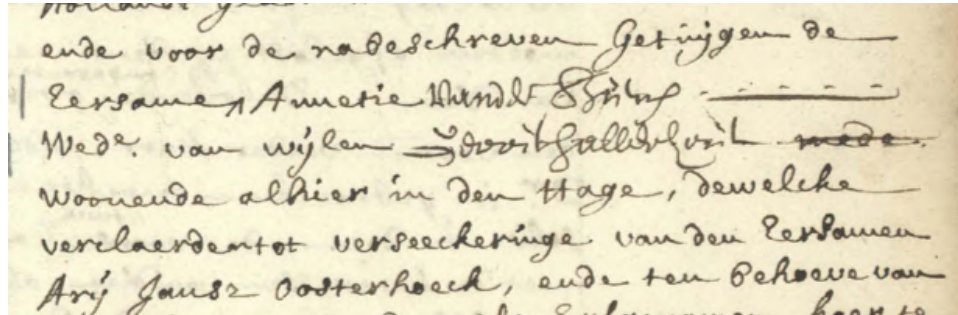 ende voor de nabeschreven Getuijgen de
Eersame, Annetie vande
Wedᵉ. van wijlen mede
woonende alhier in den Hage, dewelche
verclaerden tot verseeckeringe van den Eersamen
Arij Jansz Oosterhoeck, ende ten behoeve van